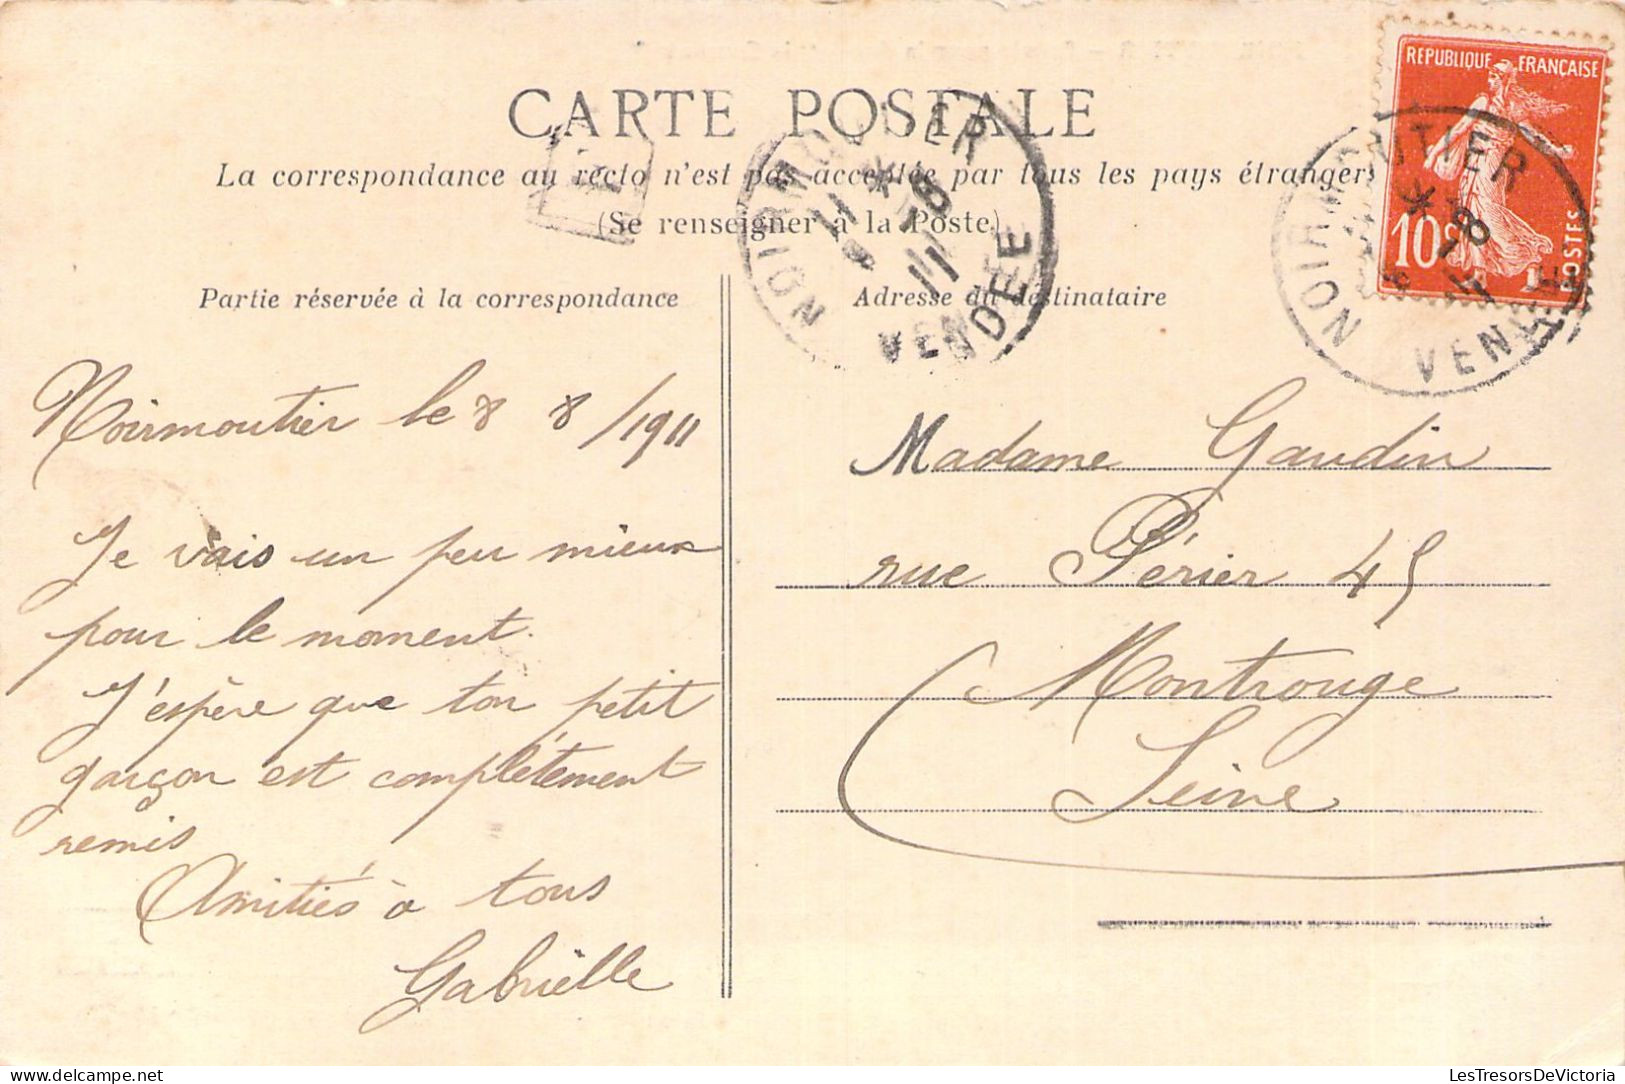 CARTE POSTALE
La correspondance au recto n'est pas acceptée par tous les pays étrangers
(Se renseigner à la Poste)
Partie réservée à la correspondance
Noirmoutier le 8 8/1911
Je vais un peu mieux
pour le moment.
J'espère que ton petit
garçon est complètement
remis
Amitiés à tous
Gabrielle
Adresse du destinataire
Madame Gaudin
rue Périer 45
Montrouge
Seine
REPUBLIQUE FRANÇAISE
10c
POSTES
NOIRMOUTIER
11 * 
8 -8
11
VENDÉE
NOIRMOUTIER
*
8 -8
11
VENDÉE
LesTresorsDeVictoria